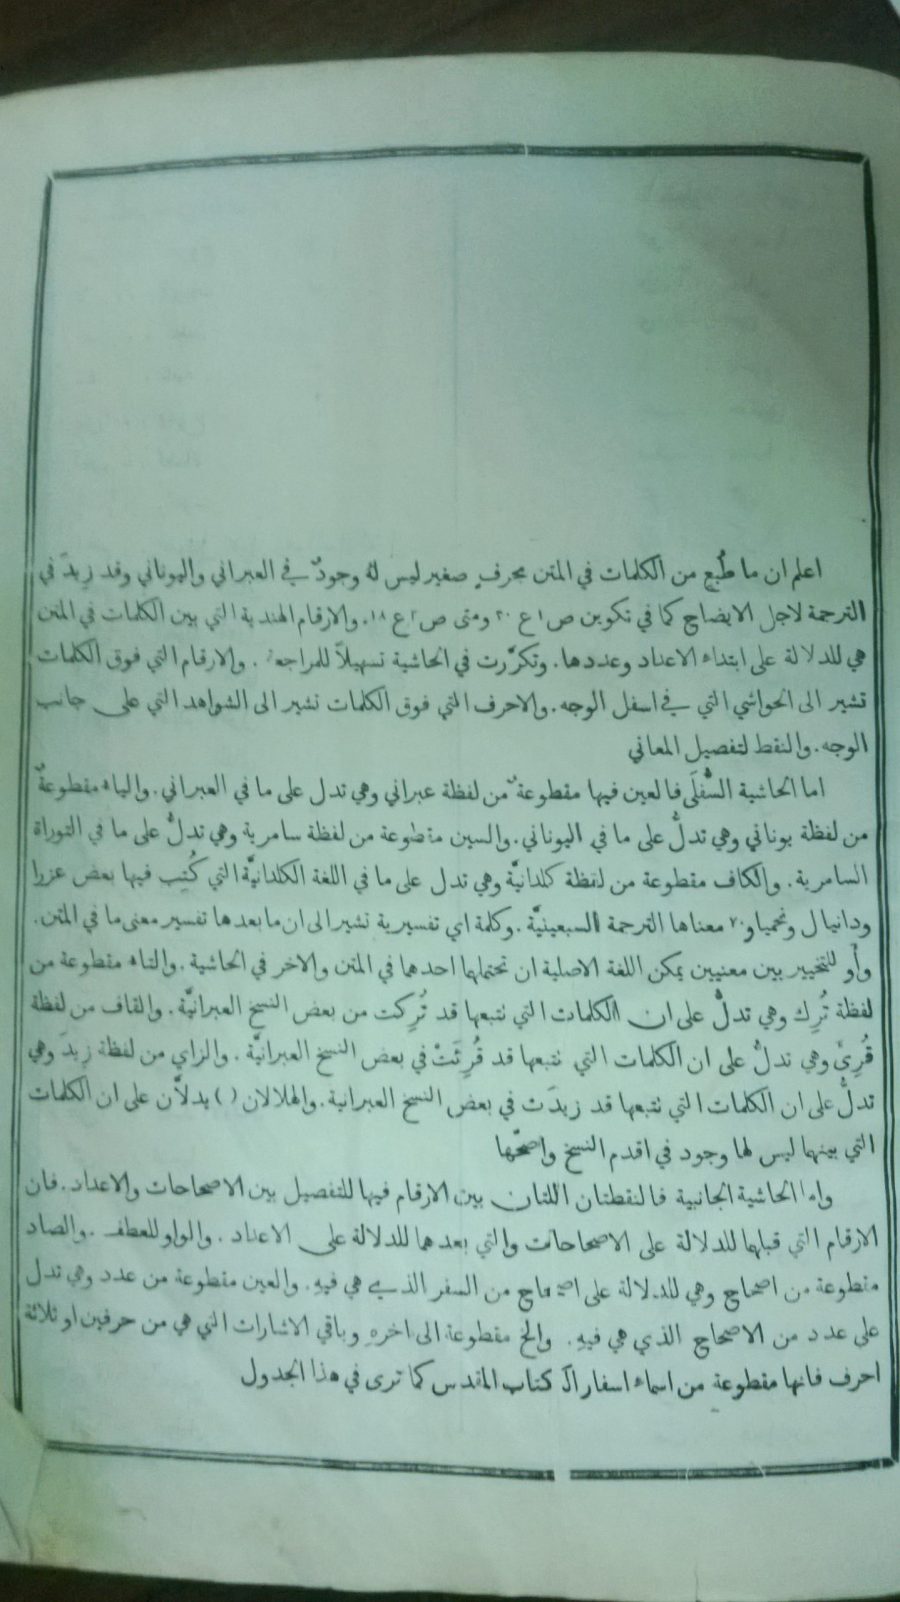 اعلم ان ما طُبع من الكلمات في المتن بحرفٍ صغير ليس لهُ وجودٌ في العبراني واليوناني وقد زِيدَ في
الترجمة لاجل الايضاح كما في تكوين ص ١ ع ٣٠ ومتى ص ٢ ع ١٨. والارقام الهندية التي بين الكلمات في المتن
هي للدلالة على ابتداء الاعداد وعددها. وتكرَّرت في الحاشية تسهيلاً للمراجعة. والارقام التي فوق الكلمات
تشير الى الحواشي التي في اسفل الوجه. والاحرف التي فوق الكلمات تشير الى الشواهد التي على جانب
الوجه. والنقط لتفصيل المعاني
اما الحاشية السُّفلَى فالعين فيها مقطوعةٌ من لفظة عبراني وهي تدل على ما في العبراني. والياء مقطوعةٌ
من لفظة يوناني وهي تدلُّ على ما في اليوناني. والسين مقطوعة من لفظة سامرية وهي تدلُّ على ما في التوراة
السامرية. والكاف مقطوعة من لفظة كلدانيَّة وهي تدل على ما في اللغة الكلدانيَّة التي كُتِب فيها بعض عزرا
ودانيال ونحميا و٧٠ معناها الترجمة السبعينيَّة. وكلمة اي تفسيرية تشير الى ان ما بعدها تفسير معنى ما في المتن.
وأَو للتخيير بين معنيين يمكن اللغة الاصلية ان تحتملها احدهما في المتن والاخر في الحاشية. والتاء مقطوعة من
لفظة تُرِك وهي تدلُّ على ان الكلمات التي تتبعها قد تُرِكت من بعض النسخ العبرانيَّة. والقاف من لفظة
قُرِئَ وهي تدلُّ على ان الكلمات التي تتبعها قد قُرِئَتْ في بعض النسخ العبرانيَّة. والزاي من لفظة زِيدَ وهي
تدلُّ على ان الكلمات التي تتبعها قد زيدَت في بعض النسخ العبرانية. والهلالان ( ) يدلاَّن على ان الكلمات
التي بينهما ليس لها وجود في اقدم النسخ واصحّها
واما الحاشية الجانبية فالنقطتان اللتان بين الارقام فيها للتفصيل بين الاصحاحات والاعداد. فان
الارقام التي قبلها للدلالة على الاصحاحات والتي بعدهما للدلالة على الاعداد. والواو للعطف. والصاد
مقطوعة من اصحاح وهي للدلالة على اصحاح من السفر الذي هي فيهِ. والعين مقطوعة من عدد وهي تدل
على عدد من الاصحاح الذي هي فيهِ. والخ مقطوعة الى اخرهِ وباقي الاشارات التي هي من حرفين او ثلاثة
احرف فانها مقطوعة من اسماء اسفار الكتاب المقدس كما ترى في هذا الجدول